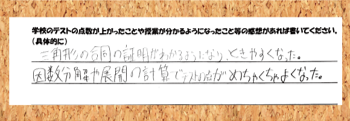 学校のテストの点数が上がったことや授業が分かるようになったこと等の感想があれば書いてください。
(具体的に)
三角形の合同の証明がわかるようになり、ときやすくなった。
因数分解や展開の計算でテストの点がめちゃくちゃよくなった。